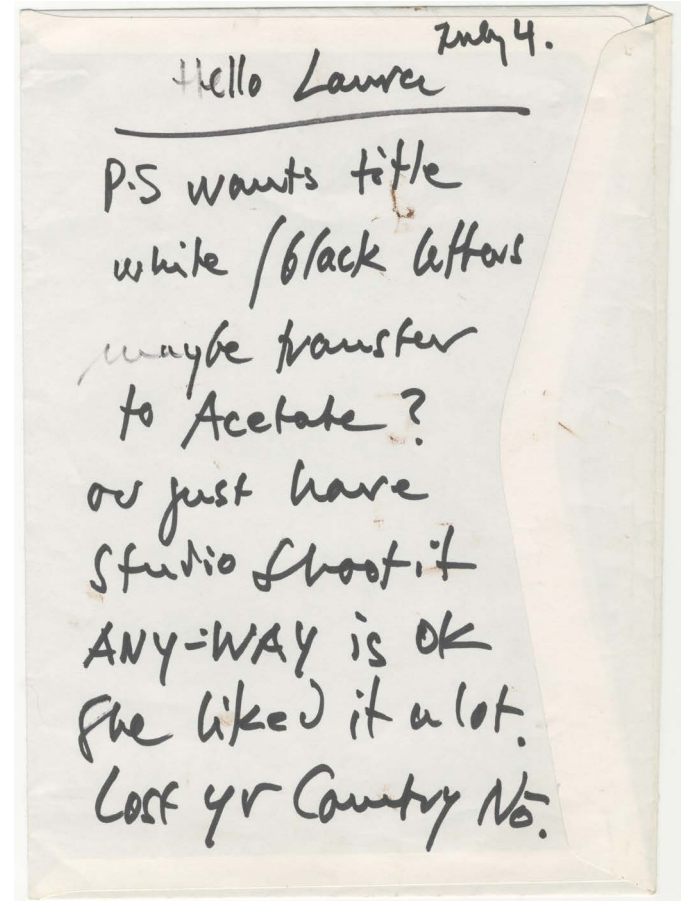 July 4.
Hello Laura
P.S wants title
white / black letters
maybe transfer
to Acetate?
or just have
studio shoot it
ANY-WAY is OK
She liked it a lot.
Lost yr Country No.